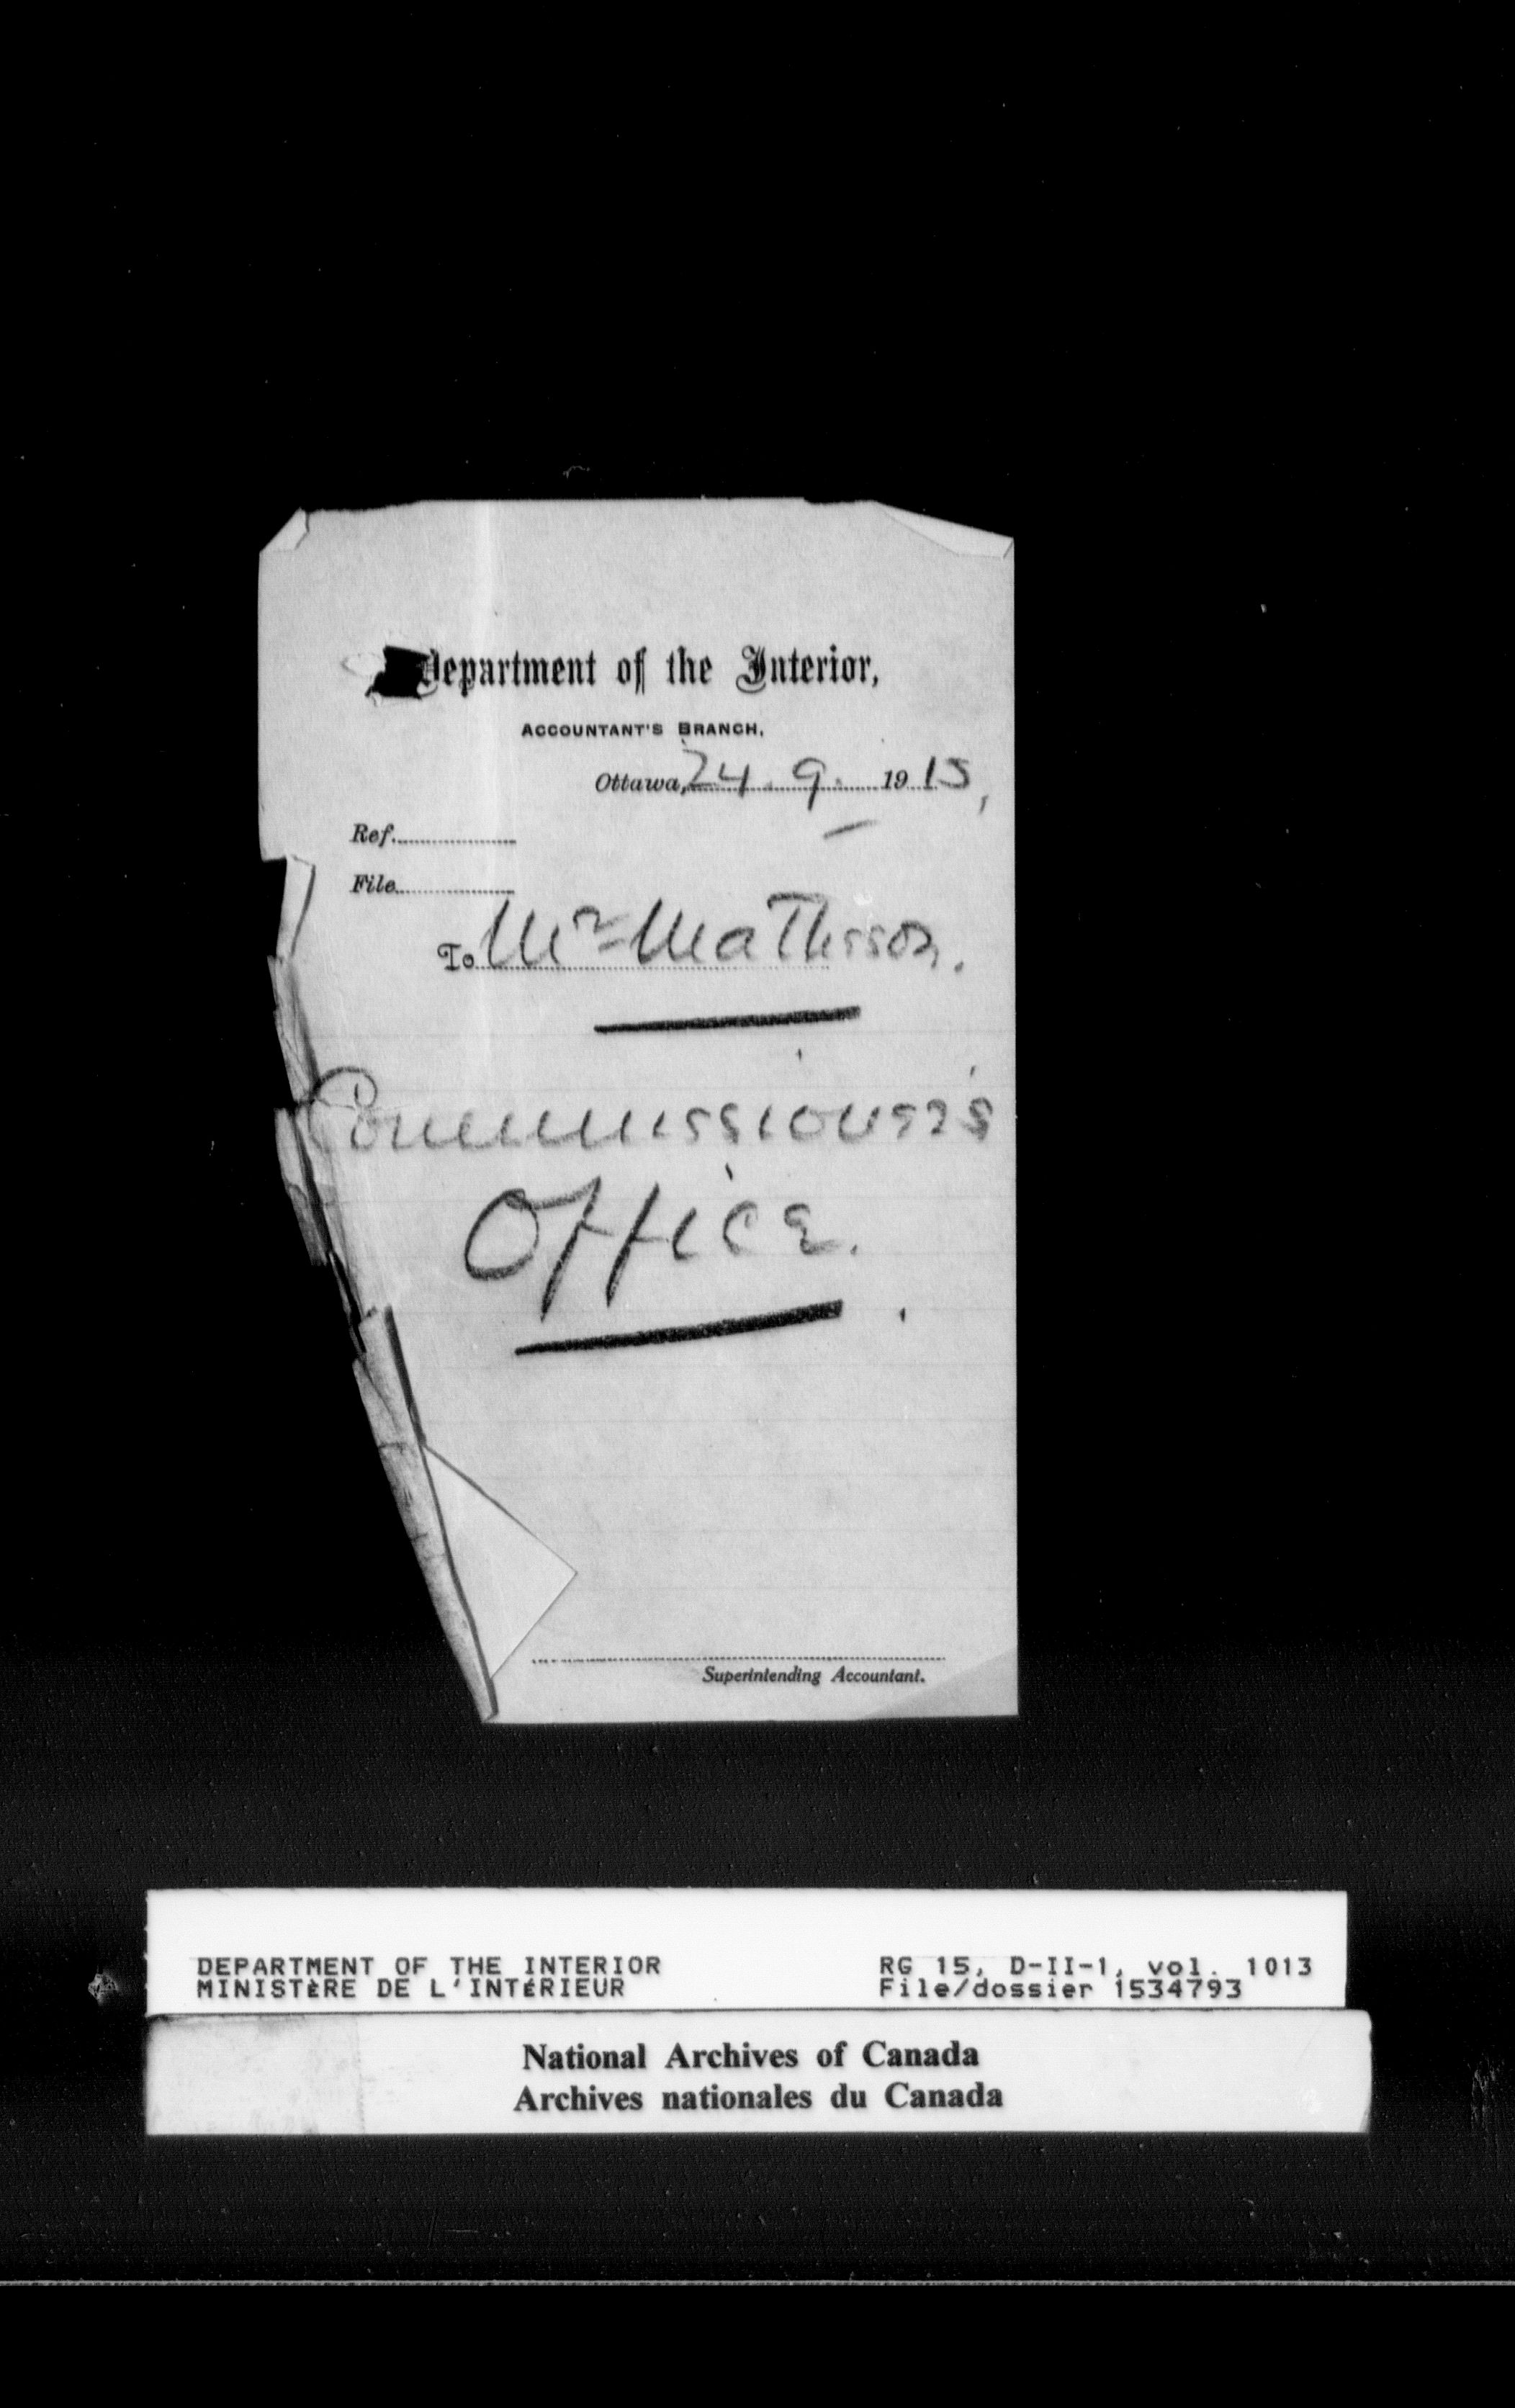 Department of the Interior,
ACCOUNTANT'S BRANCH,
Ottawa, 24.9. 1915,
Ref.
File
To Mr Matheson.
Commissioner's
Office.
Superintending Accountant.
DEPARTMENT OF THE INTERIOR RG 15, D-II-1, vol. 1013
MINISTÈRE DE L'INTÉRIEUR File/dossier 1534793
National Archives of Canada
Archives nationales du Canada